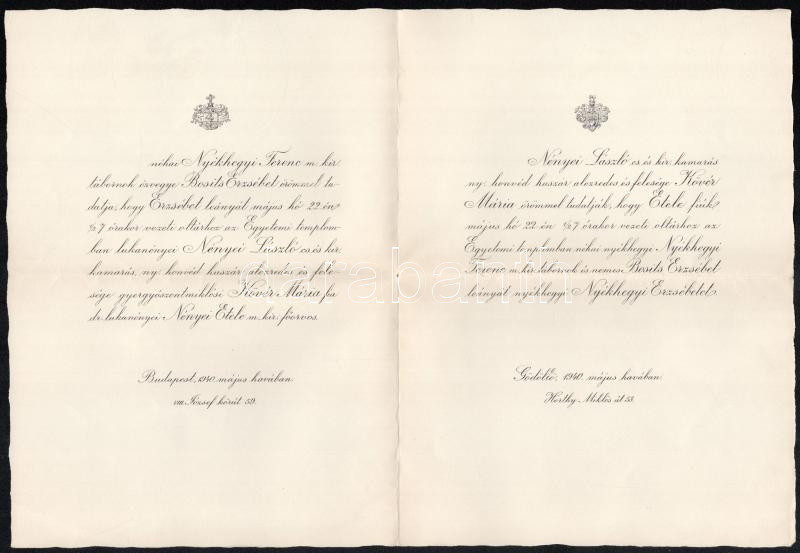 néhai Nyékhegyi Ferenc m. kir.
tábornok özvegye Bosits Erzsébet örömmel tu-
datja, hogy Erzsébet leányát május hó 22-én
½7 órakor vezeti oltárhoz az Egyetemi templom-
ban lukanényei Nényei László cs. és kir.
kamarás, ny. honvéd huszár alezredes és fele-
sége gyergyószentmiklósi Kövér Mária fia
dr. lukanényei Nényei Etele m. kir. főorvos.
Budapest, 1940. május havában.
VIII. József körút 59.
Nényei László cs. és kir. kamarás
ny. honvéd huszár alezredes és felesége Kövér
Mária örömmel tudatják, hogy Etele fiúk
május hó 22-én ½7 órakor vezeti oltárhoz az
Egyetemi templomban néhai nyékhegyi Nyékhegyi
Ferenc m. kir. tábornok és nemes Bosits Erzsébet
leányát nyékhegyi Nyékhegyi Erzsébetet.
Gödöllő, 1940. május havában.
Horthy Miklós út 53.